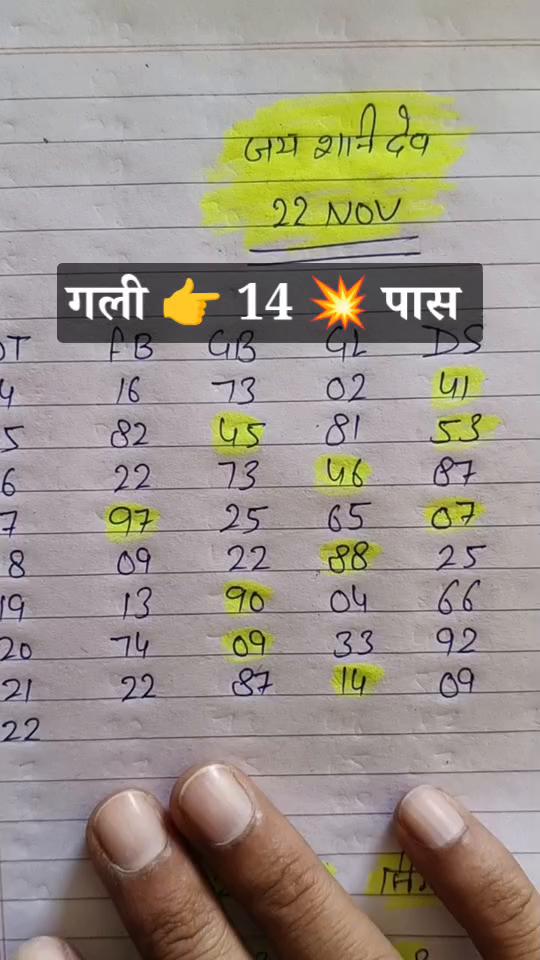 जय शनि देव
22 NOV
गली 👉 14 💥 पास
DT FB GB GL DS
4 16 73 02 41
5 82 45 81 53
6 22 73 46 87
7 97 25 65 07
8 09 22 88 25
19 13 90 04 66
20 74 09 33 92
21 22 87 14 09
22